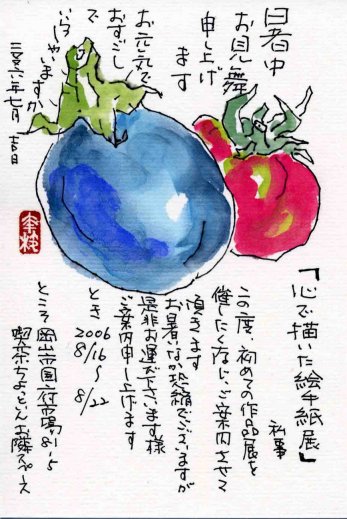 暑中
お見舞
申し上げ
ます
お元気で
おすごし
で
いらっしゃいますか
二〇〇六年七月 吉日
「心で描いた絵手紙展」
私事
この度、初めての作品展を
催したく存じ、ご案内させて
頂きます
お暑いなか恐縮でございますが
是非お運び下さいます様
ご案内申し上げます
とき 2006
8/16〜8/22
ところ 岡山市国府市場81-5
喫茶ちょっとお隣スペース